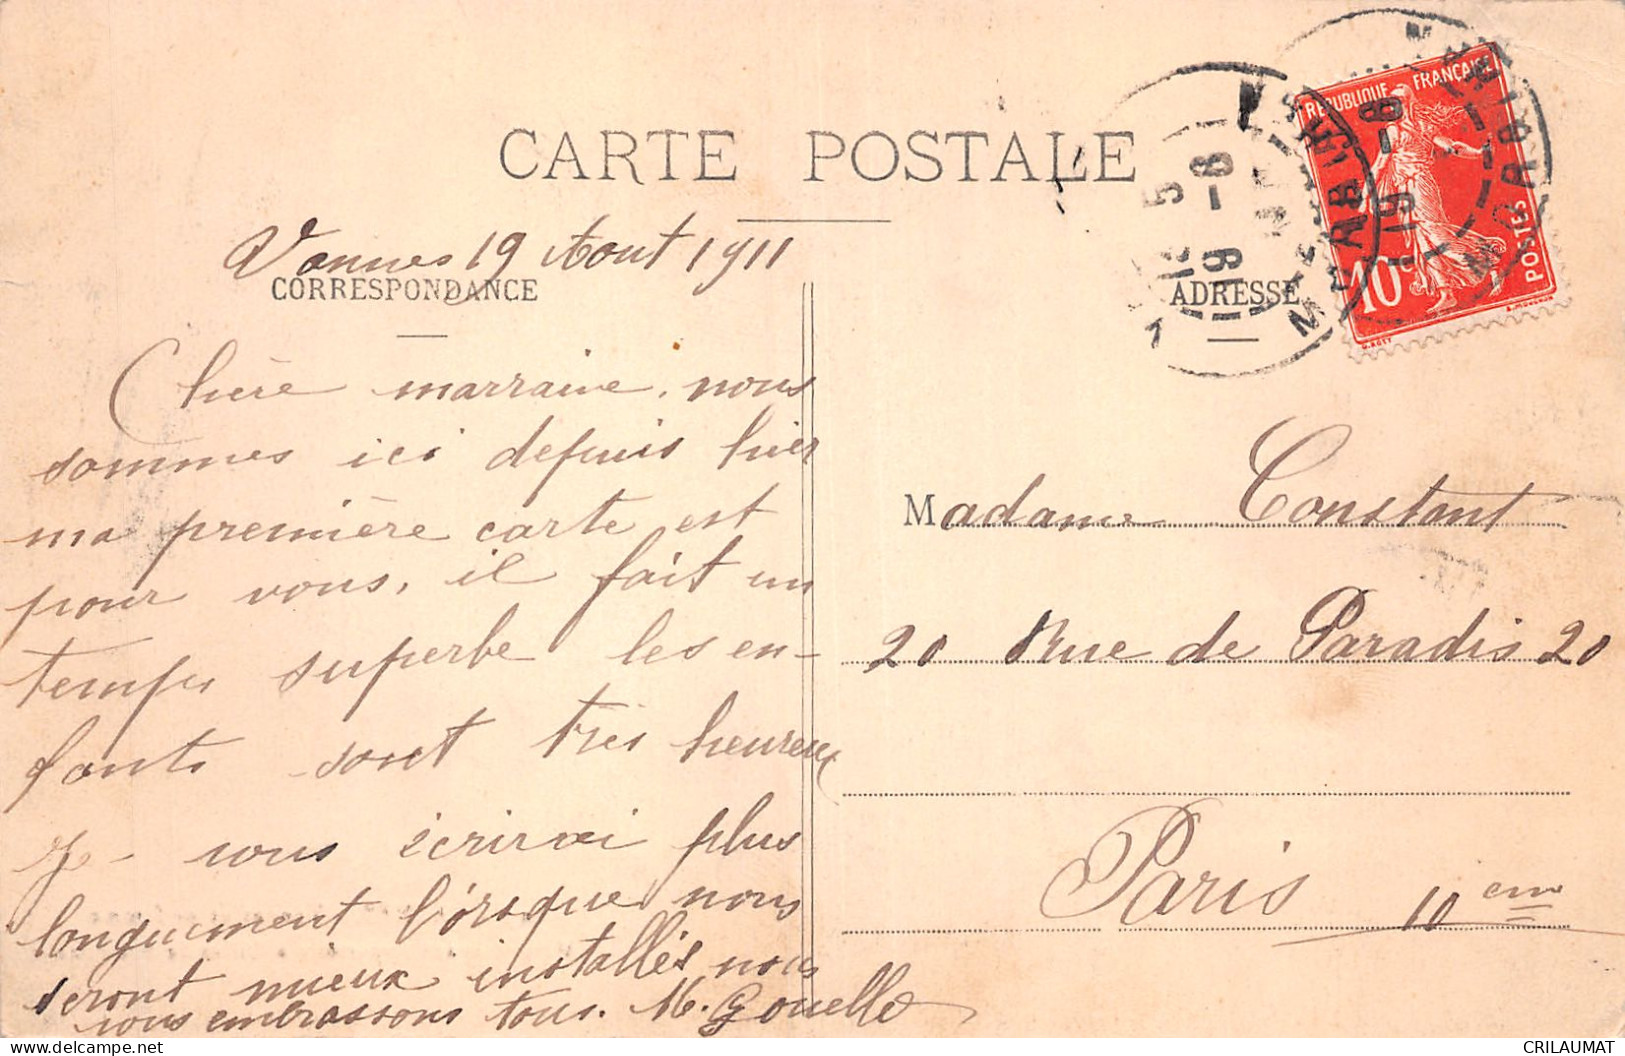 CARTE POSTALE
Vannes 19 Aout 1911
CORRESPONDANCE
ADRESSE
RÉPUBLIQUE FRANÇAISE
POSTES
10c
Chère marraine, nous
sommes ici depuis hier
ma première carte est
pour vous, il fait un
temps superbe les en-
fants sont très heureux
Je vous écrirai plus
longuement lorsque nous
seront mieux installés nous
vous embrassons tous. M. Gouello
Madame Constant
20 Rue de Paradis 20
Paris 10 eme
CRILAUMAT